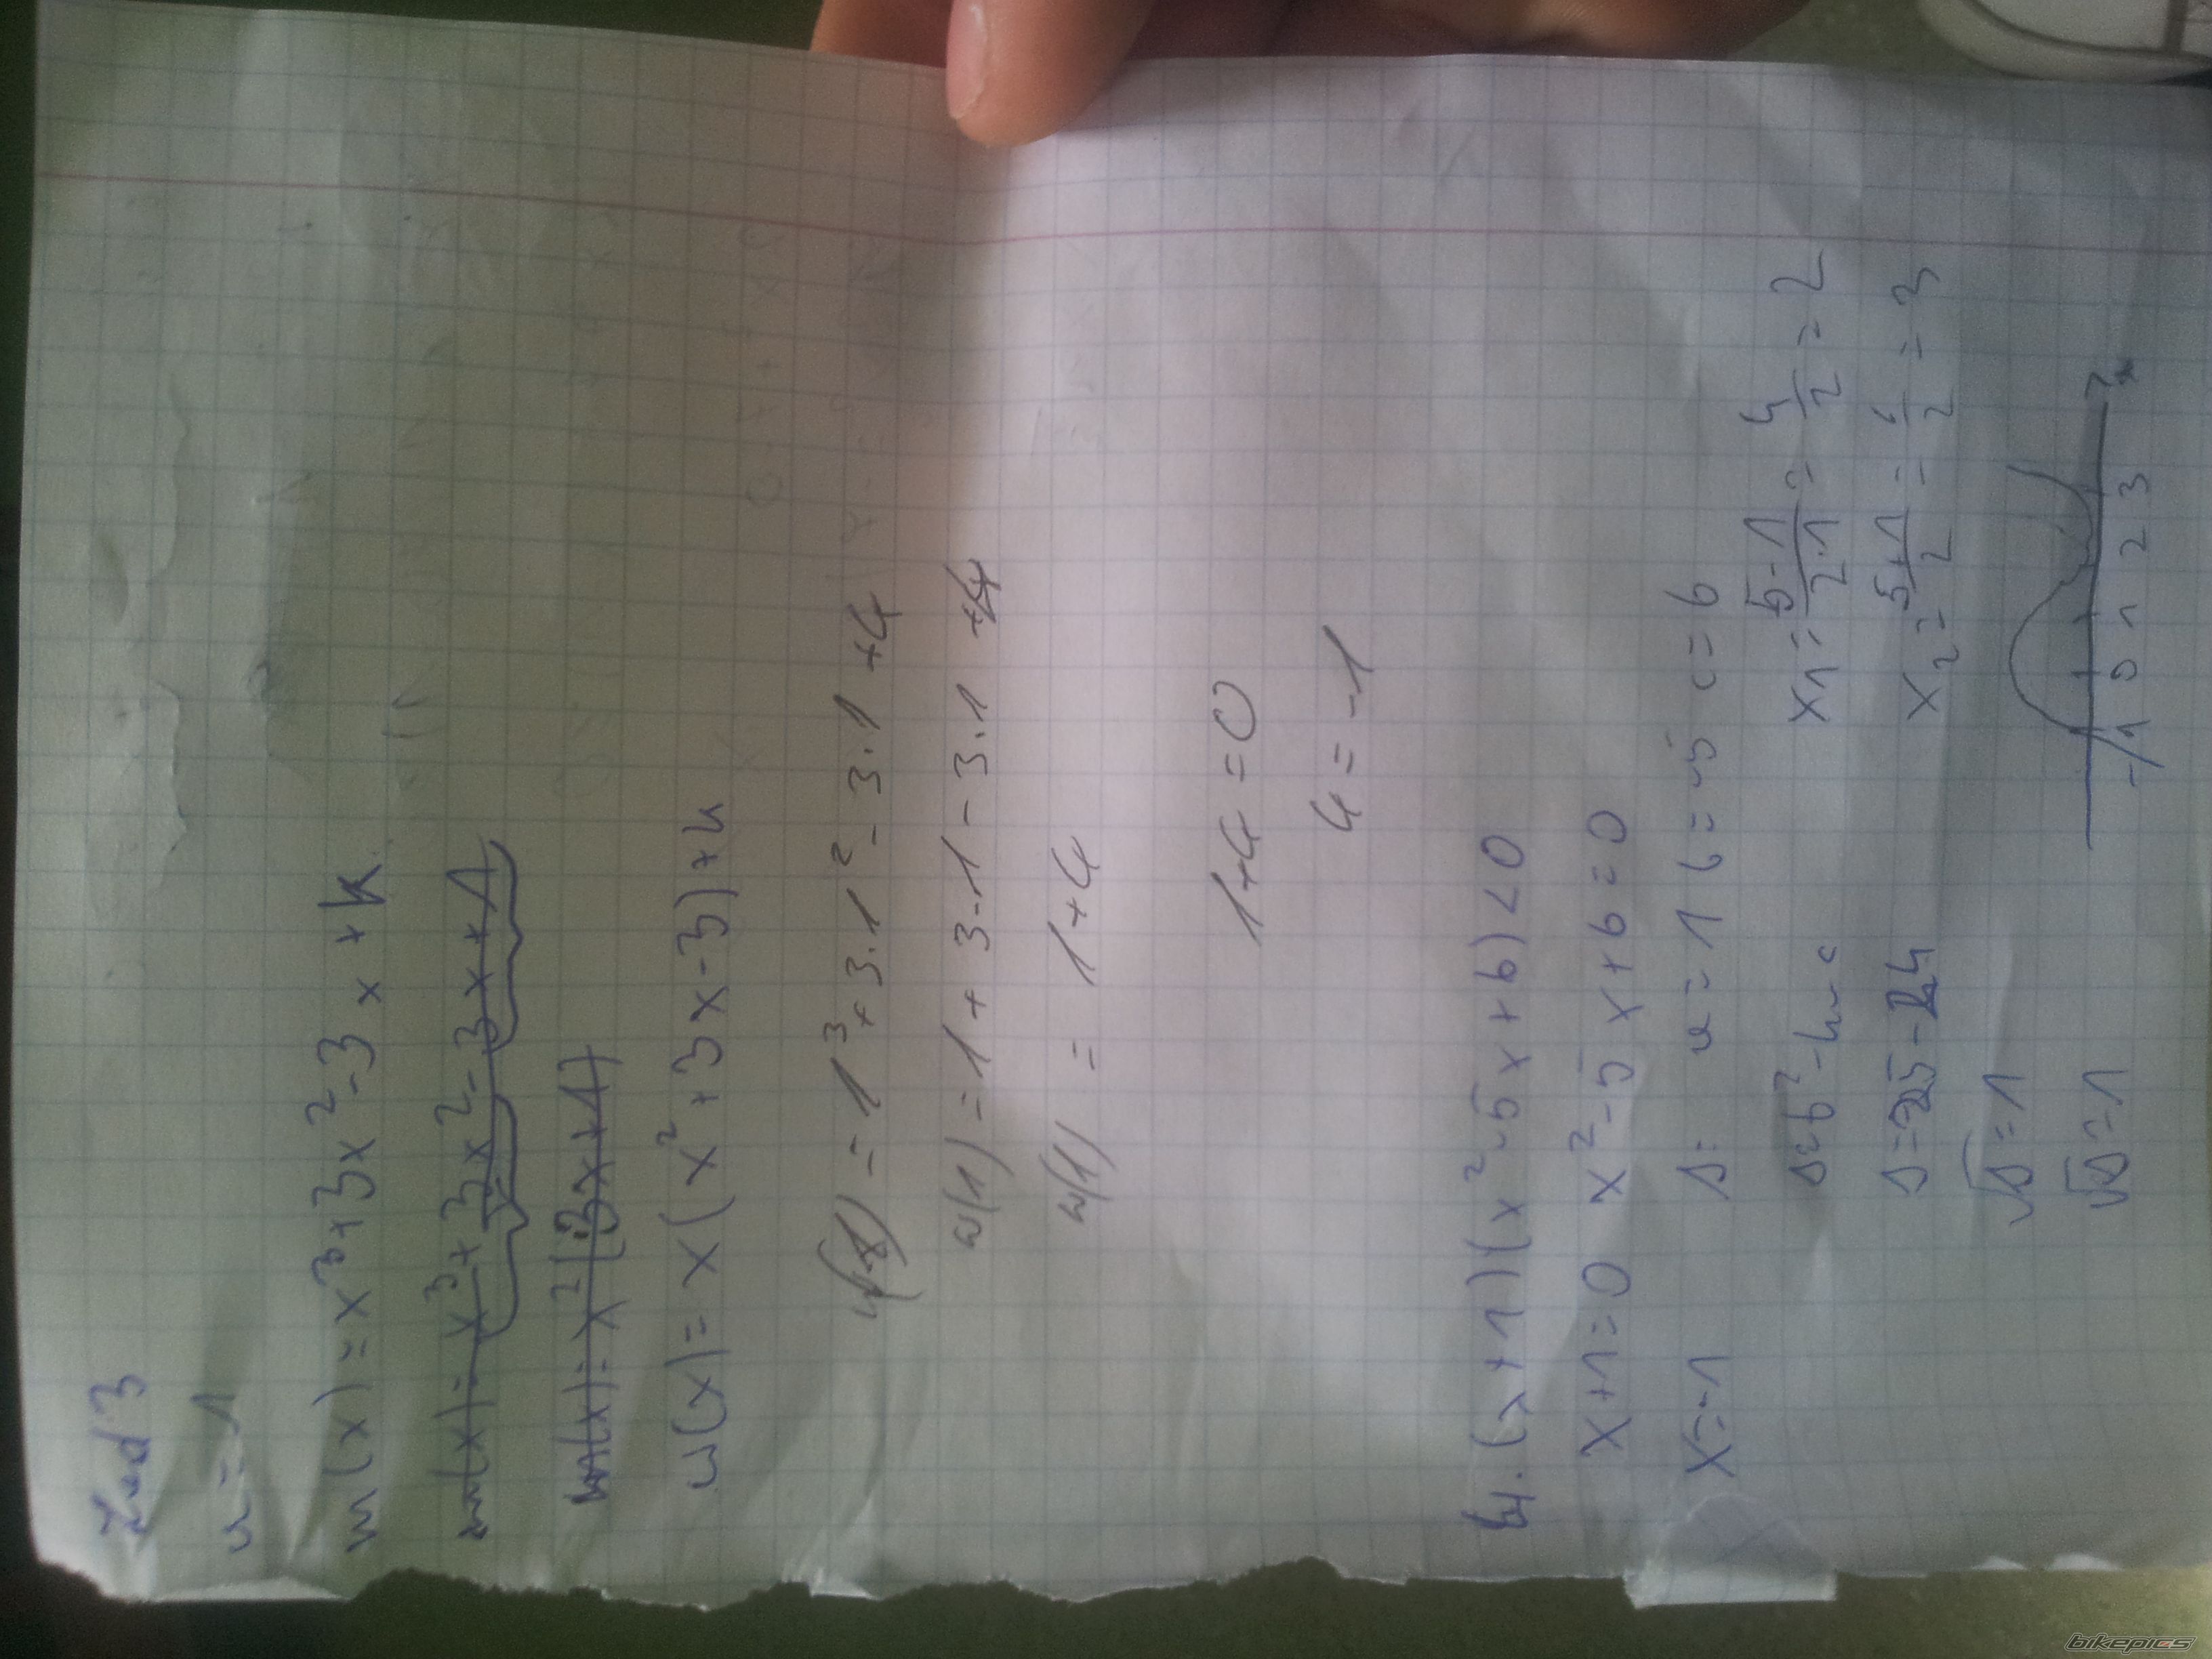 Zad 3
a = 1
w(x) = x³ + 3x² - 3x + k
w(x) = x³ + 3x² - 3x + 1
w(x) = x² (3x + 1)
w(x) = x(x² + 3x - 3) + k
w(1) = 1³ + 3·1² - 3·1 + k
w(1) = 1 + 3·1 - 3·1 + k
w(1) = 1 + k
1 + k = 0
k = -1
4. (x + 1)(x² - 5x + 6) < 0
x + 1 = 0 x² - 5x + 6 = 0
x = -1 Δ: a = 1 b = -5 c = 6
Δ = b² - 4ac x1 = 5-1/2·1 = 4/2 = 2
Δ = 25 - 24 x2 = 5+1/2 = 6/2 = 3
√Δ = 1
√Δ = 1
-1 0 1 2 3 x
bikepics